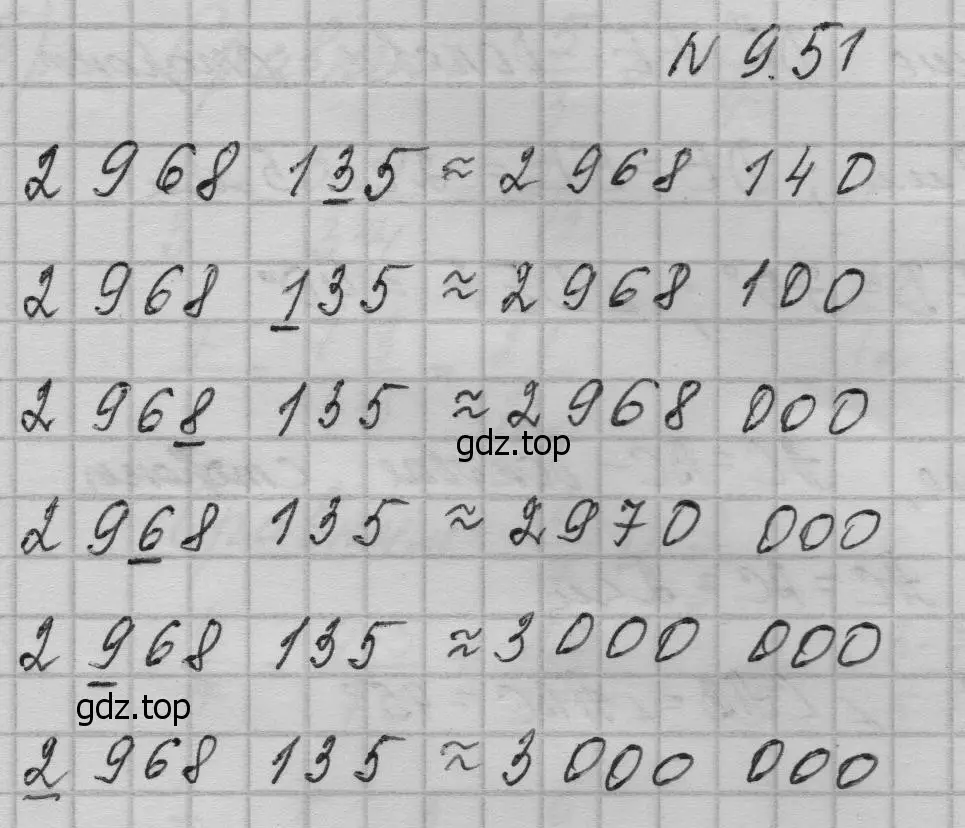 N 9.51
2 968 135 ≈ 2 968 140
2 968 135 ≈ 2 968 100
2 968 135 ≈ 2 968 000
gdz.top
2 968 135 ≈ 2 970 000
2 968 135 ≈ 3 000 000
gdz.top
2 968 135 ≈ 3 000 000